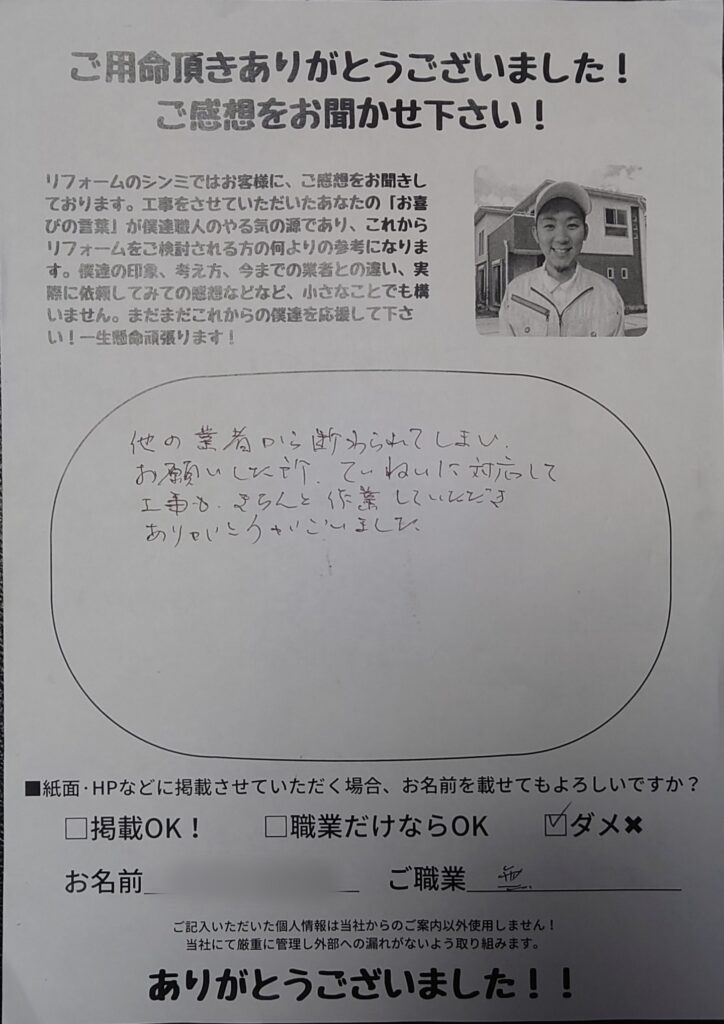 ご用命頂きありがとうございました！
ご感想をお聞かせ下さい！
リフォームのシンミではお客様に、ご感想をお聞きし
ております。工事をさせていただいたあなたの「お喜
びの言葉」が僕達職人のやる気の源であり、これから
リフォームをご検討される方の何よりの参考になりま
す。僕達の印象、考え方、今までの業者との違い、実
際に依頼してみての感想などなど、小さなことでも構
いません。まだまだこれからの僕達を応援して下さ
い！一生懸命頑張ります！
他の業者から断わられてしまい、
お願いした所、ていねいに対応して
工事も、きちんと作業していただき
ありがとうございました
■紙面・HPなどに掲載させていただく場合、お名前を載せてもよろしいですか？
□掲載OK！ □職業だけならOK ☑ダメ✖
お名前 ご職業 無
ご記入いただいた個人情報は当社からのご案内以外使用しません！
当社にて厳重に管理し外部への漏れがないよう取り組みます。
ありがとうございました！！